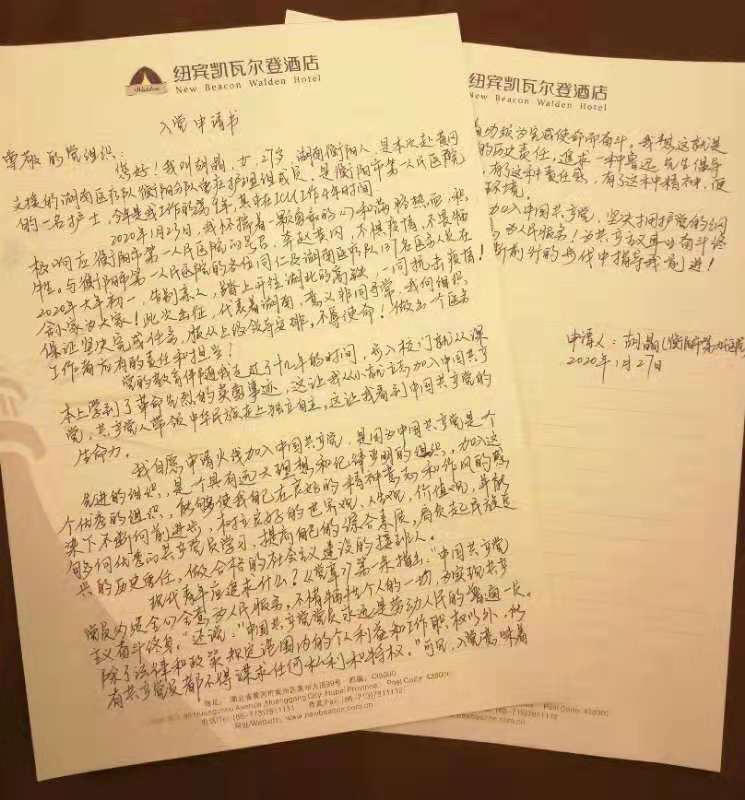 纽宾凯瓦尔登酒店
New Beacon Walden Hotel
Walden
入党申请书
尊敬的党组织:
您好!我叫胡晶,女,27岁,湖南衡阳人,是本次赴黄冈
支援的湖南医疗队衡阳分队重症护理组成员,是衡阳市第一人民医院
的一名护士,今年是我工作的第9年,其中在ICU工作4年时间
2020年1月25日,我怀揣着一颗勇敢的心和满腔热血,积
极响应衡阳市第一人民医院的号召,奔赴黄冈,不惧疫情,不畏牺
牲。与衡阳市第一人民医院的各位同仁及湖南医疗队137名医务人员在
2020年大年初一,告别亲人,踏上开往湖北的高铁,一同抗击疫情!
舍小家为大家!此次出征,代表着湖南,意义非同寻常,我向组织
保证坚决完成任务,服从上级领导安排,不辱使命!做出一个医务
工作者应有的责任和担当!
党的教育伴随我走过了十几年的时间,步入校门就从课
本上学到了革命先烈的英勇事迹,这让我从小就立志加入中国共产
党,共产党人带领中华民族走上独立自主,这让我看到中国共产党的
生命力。
我自愿申请火线加入中国共产党,是因为中国共产党是个
先进的组织,是个具有远大理想和纪律严明的组织,加入这
个优秀的组织,能够使我自己在良好的精神意志和作风的感
染下不断向前进步,树立良好的世界观,人生观,价值观,并能
够向优秀的共产党员学习,提高自己的综合素质,肩负起民族复
兴的历史责任,做合格的社会主义建设的接班人。
现代青年应追求什么?《党章》第一条指出:"中国共产党
党员必须全心全意为人民服务,不惜牺牲个人的一切,为实现共产
主义奋斗终身。"还说:"中国共产党党员永远是劳动人民的普通一员。
除了法律和政策规定范围内的个人利益和工作职权以外,所
有共产党员都不得谋求任何私利和特权。"可见,入党意味着
地址:湖北省黄冈市黄州区黄州大道99号 邮编:438000
Huangzhou Avenue,Huanggang City,Hubei Province, Post Code: 438000
电话/Tel:(86-713)7811111
网址/Website: www.newbeacon.com.cn
纽宾凯瓦尔登酒店
New Beacon Walden Hotel
力须为完成使命而奋斗,我想这就是
的历史责任,追求一种鲁迅先生倡导
有了这种责任感,有了这种精神,便
环境。
加入中国共产党,坚决拥护党的纲
为人民服务!为共产主义事业奋斗终
断前行的步伐中指导我前进!
申请人:胡晶(衡阳市第一人民医院
2020年1月27日
Post Code: 438000
7812222
.com.cn